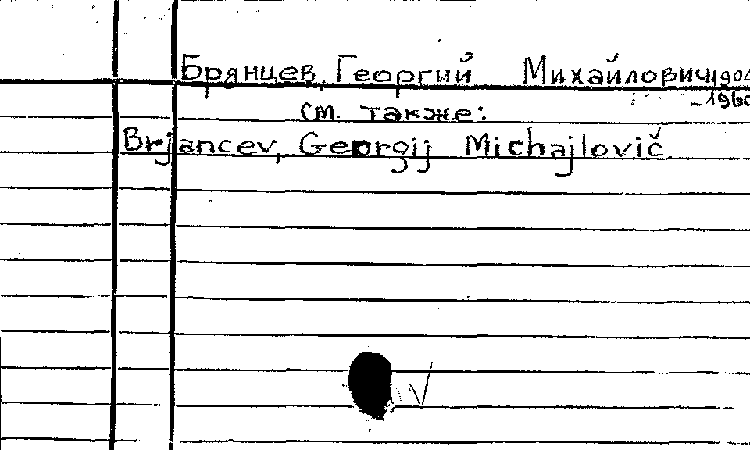 Брянцев, Георгий Михайлович, 1904
-1960
см. также:
Brjancev, Georgij Michajlovič